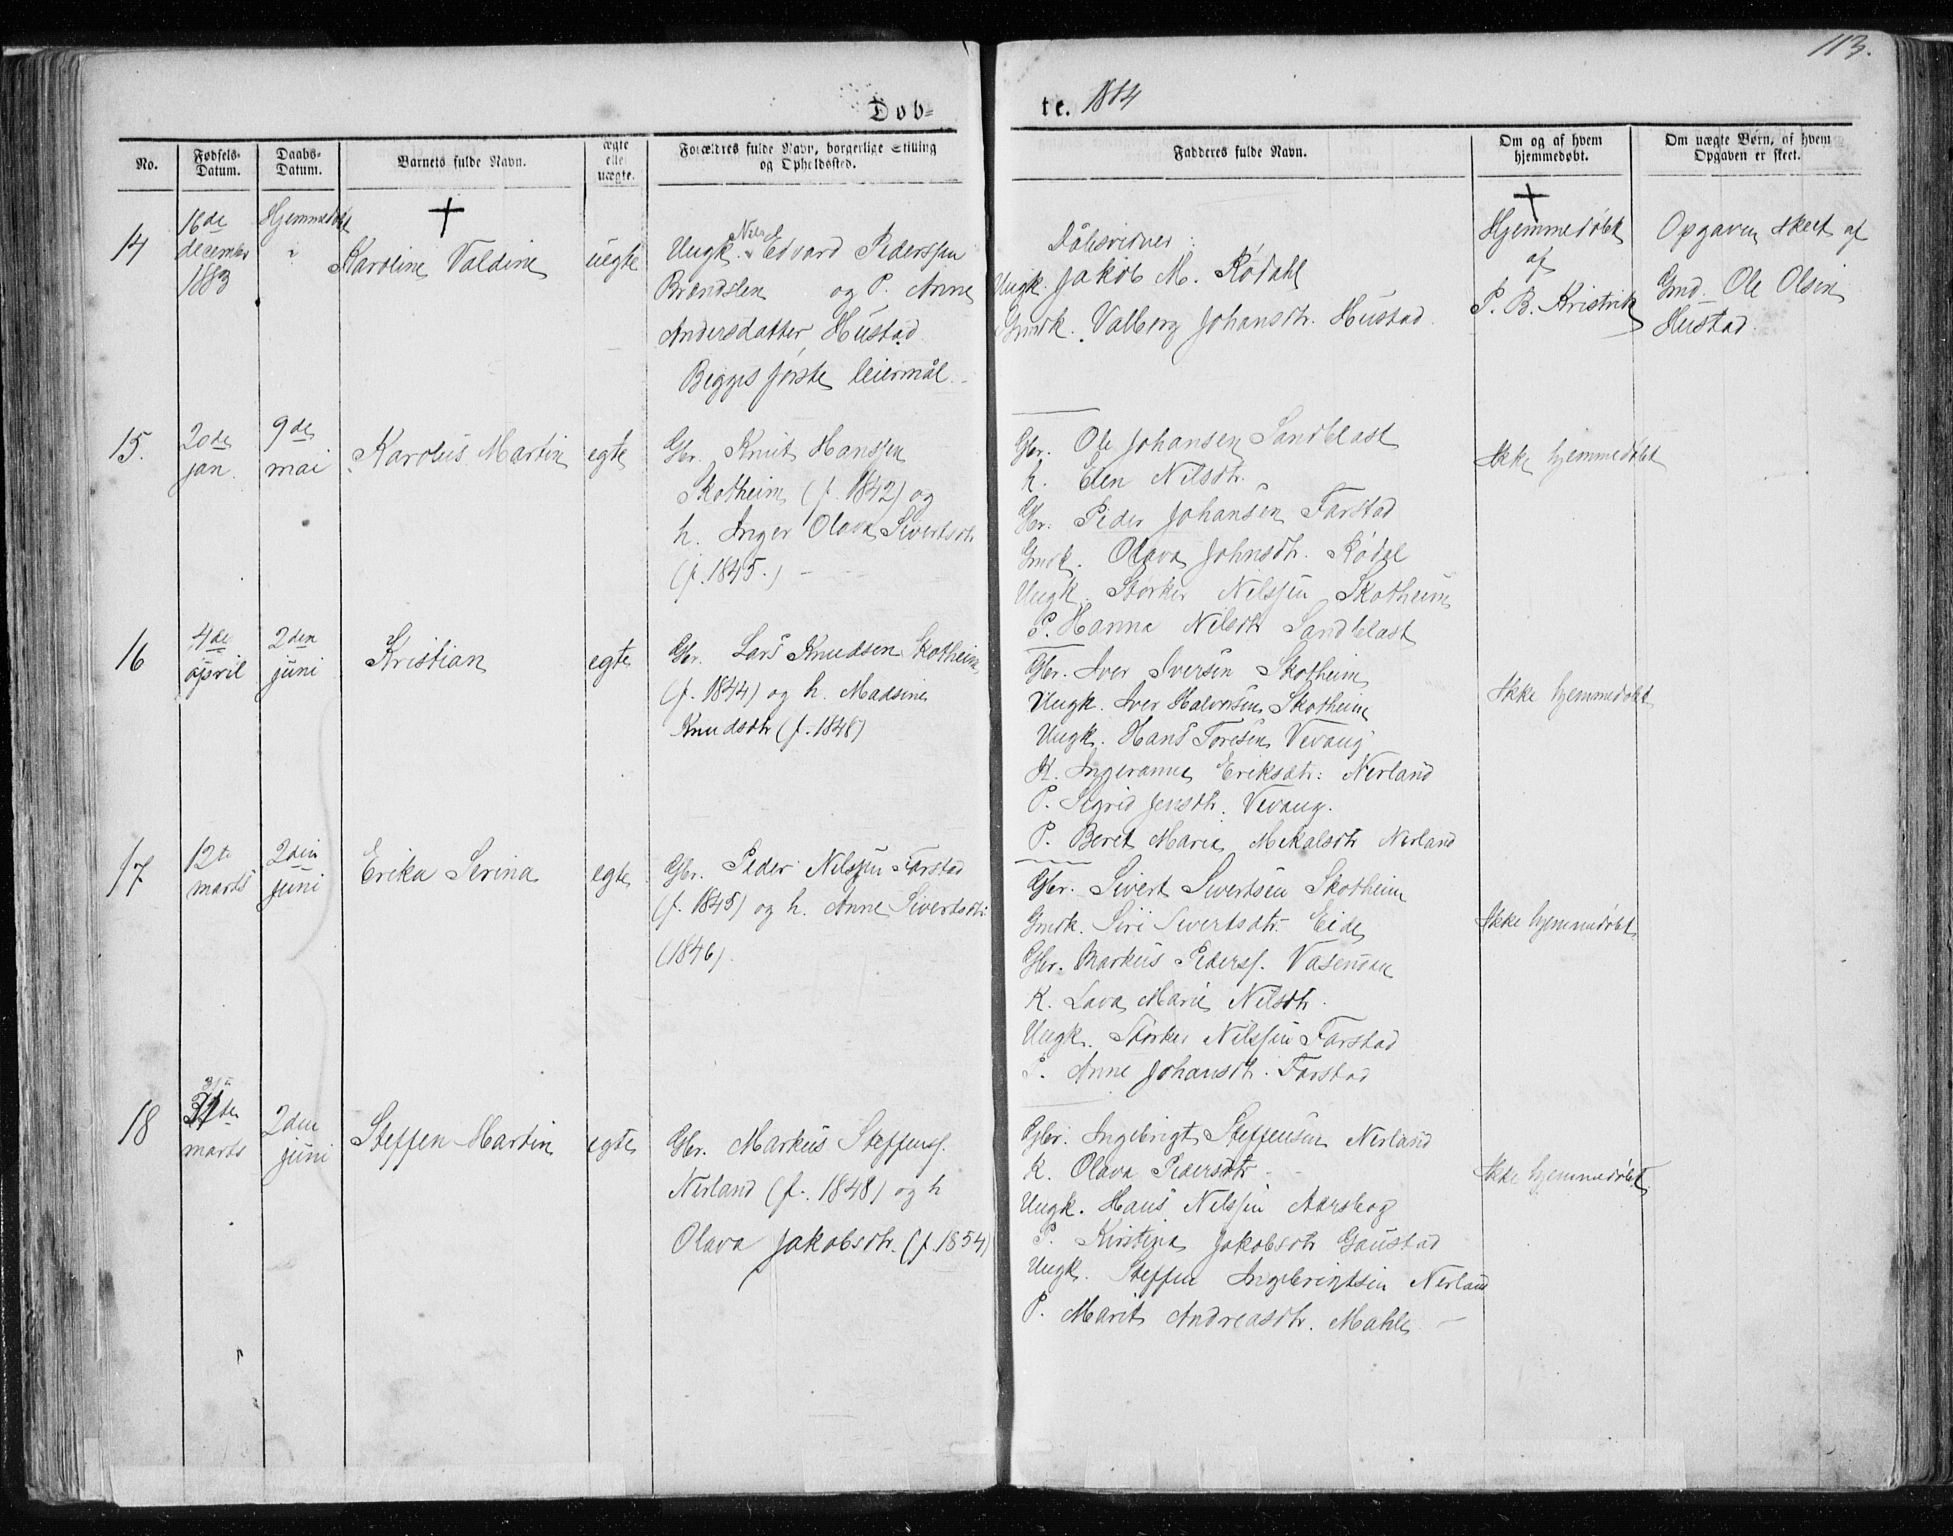 113.
Døb-
te. 1884
No.
Fødsels-
Datum.
Daabs-
Datum.
Barnets fulde Navn.
ægte
eller
uægte.
Forældres fulde Navn, borgerlige Stilling
og Opholdssted.
Fadderes fulde Navn.
Om og af hvem
hjemmedøbt.
Om uægte Børn, af hvem
Opgaven er skeet.
14
16de
december
1883
Hjemmedøbt
†
Karoline Valdine
uegte
Ungk. Nils Edvard Pederssen
Brandslen og P. Anne
Andersdatter Hustad.
Begges første leiermål.
Dåbsvidner:
Ungk. Jakob M. Rødahl
Gmdk. Valborg Johansdtr. Hustad.
†
Hjemmedøbt
af
P. B. Kristvik
Opgaven skeet af
Gmd. Ole Olsen
Hustad.
15.
20de
jan.
9de
mai
Karolus Martin
egte
Gbr. Knut Hanssen
Skotheim (f. 1842) og
h. Inger Olava Sivertsdtr
(f. 1845.)
Gbr. Ole Johansen Sandblast
k. Elen Nilsdtr.
Gbr. Peder Johansen Farstad
Gmdk. Olava Johnsdtr. Rødal
Ungk. Størker Nilssen Skotheim
P. Hanna Nilsdtr Sandblast
Ikke hjemmedøbt
16
4de
april
2den
juni
Kristian
egte
Gbr. Lars Knudsen Skotheim
(f. 1844) og h. Madsine
Knudsdtr (f. 1848)
Gbr. Iver Iversen Skotheim
Ungk. Iver Halvorsen Skotheim
Ungk. Hans Toresen Vevang
K. Ingeranna Eriksdtr: Nerland
P. Sigrid Jensdtr. Vevang.
P. Beret Marie Mikalsdtr Nerland
Ikke hjemmedøbt
17
12te
marts
2den
juni
Erika Serina
egte
Gbr. Peder Nilssen Farstad
(f. 1845) og h. Anne Sivertsdtr
(1846).
Gbr. Sivert Sivertsen Skotheim
Gmdk. Siri Sivertsdtr. Eide
Gbr. Markus Pederss. Vasenden
K. Lava Marie Nilsdtr.
Ungk. Størker Nilssen Farstad
P. Anne Johansdtr. Farstad
Ikke hjemmedøbt
18
31te
marts
2den
juni
Steffen Martin
egte
Gbr. Markus Steffenss.
Nerland (f. 1848) og h
Olava Jakobsdtr. (f. 1854)
Gbr. Ingebrigt Steffensen Nerland
K. Olava Pedersdtr
Ungk. Hans Nilssen Aarsbog
P. Kirstina Jakobsdtr Gaustad
Ungk. Steffen Ingebrigtsen Nerland
P. Marit Andreasdtr. Mahle
Ikke hjemmedøbt